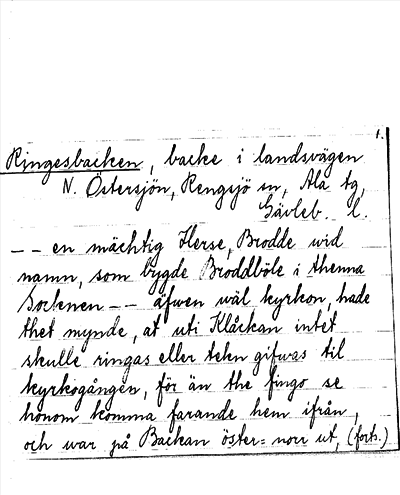 1.
Ringesbacken, backe i landsvägen
N. Östersjön, Rengsjö sn, Ala tg,
Gävleb. l.
-- en mächtig Herse, Brodde wid
namn, som bygde Broddböle i thenna
Socknen -- äfwen wäl kyrkon, hade
thet mynde, at uti Klåckan intet
skulle ringas eller tekn gifwas til
kyrkogången, för än the fingo se
honom komma farande hem ifrån,
och war på Backan öster=norr ut, (forts.)